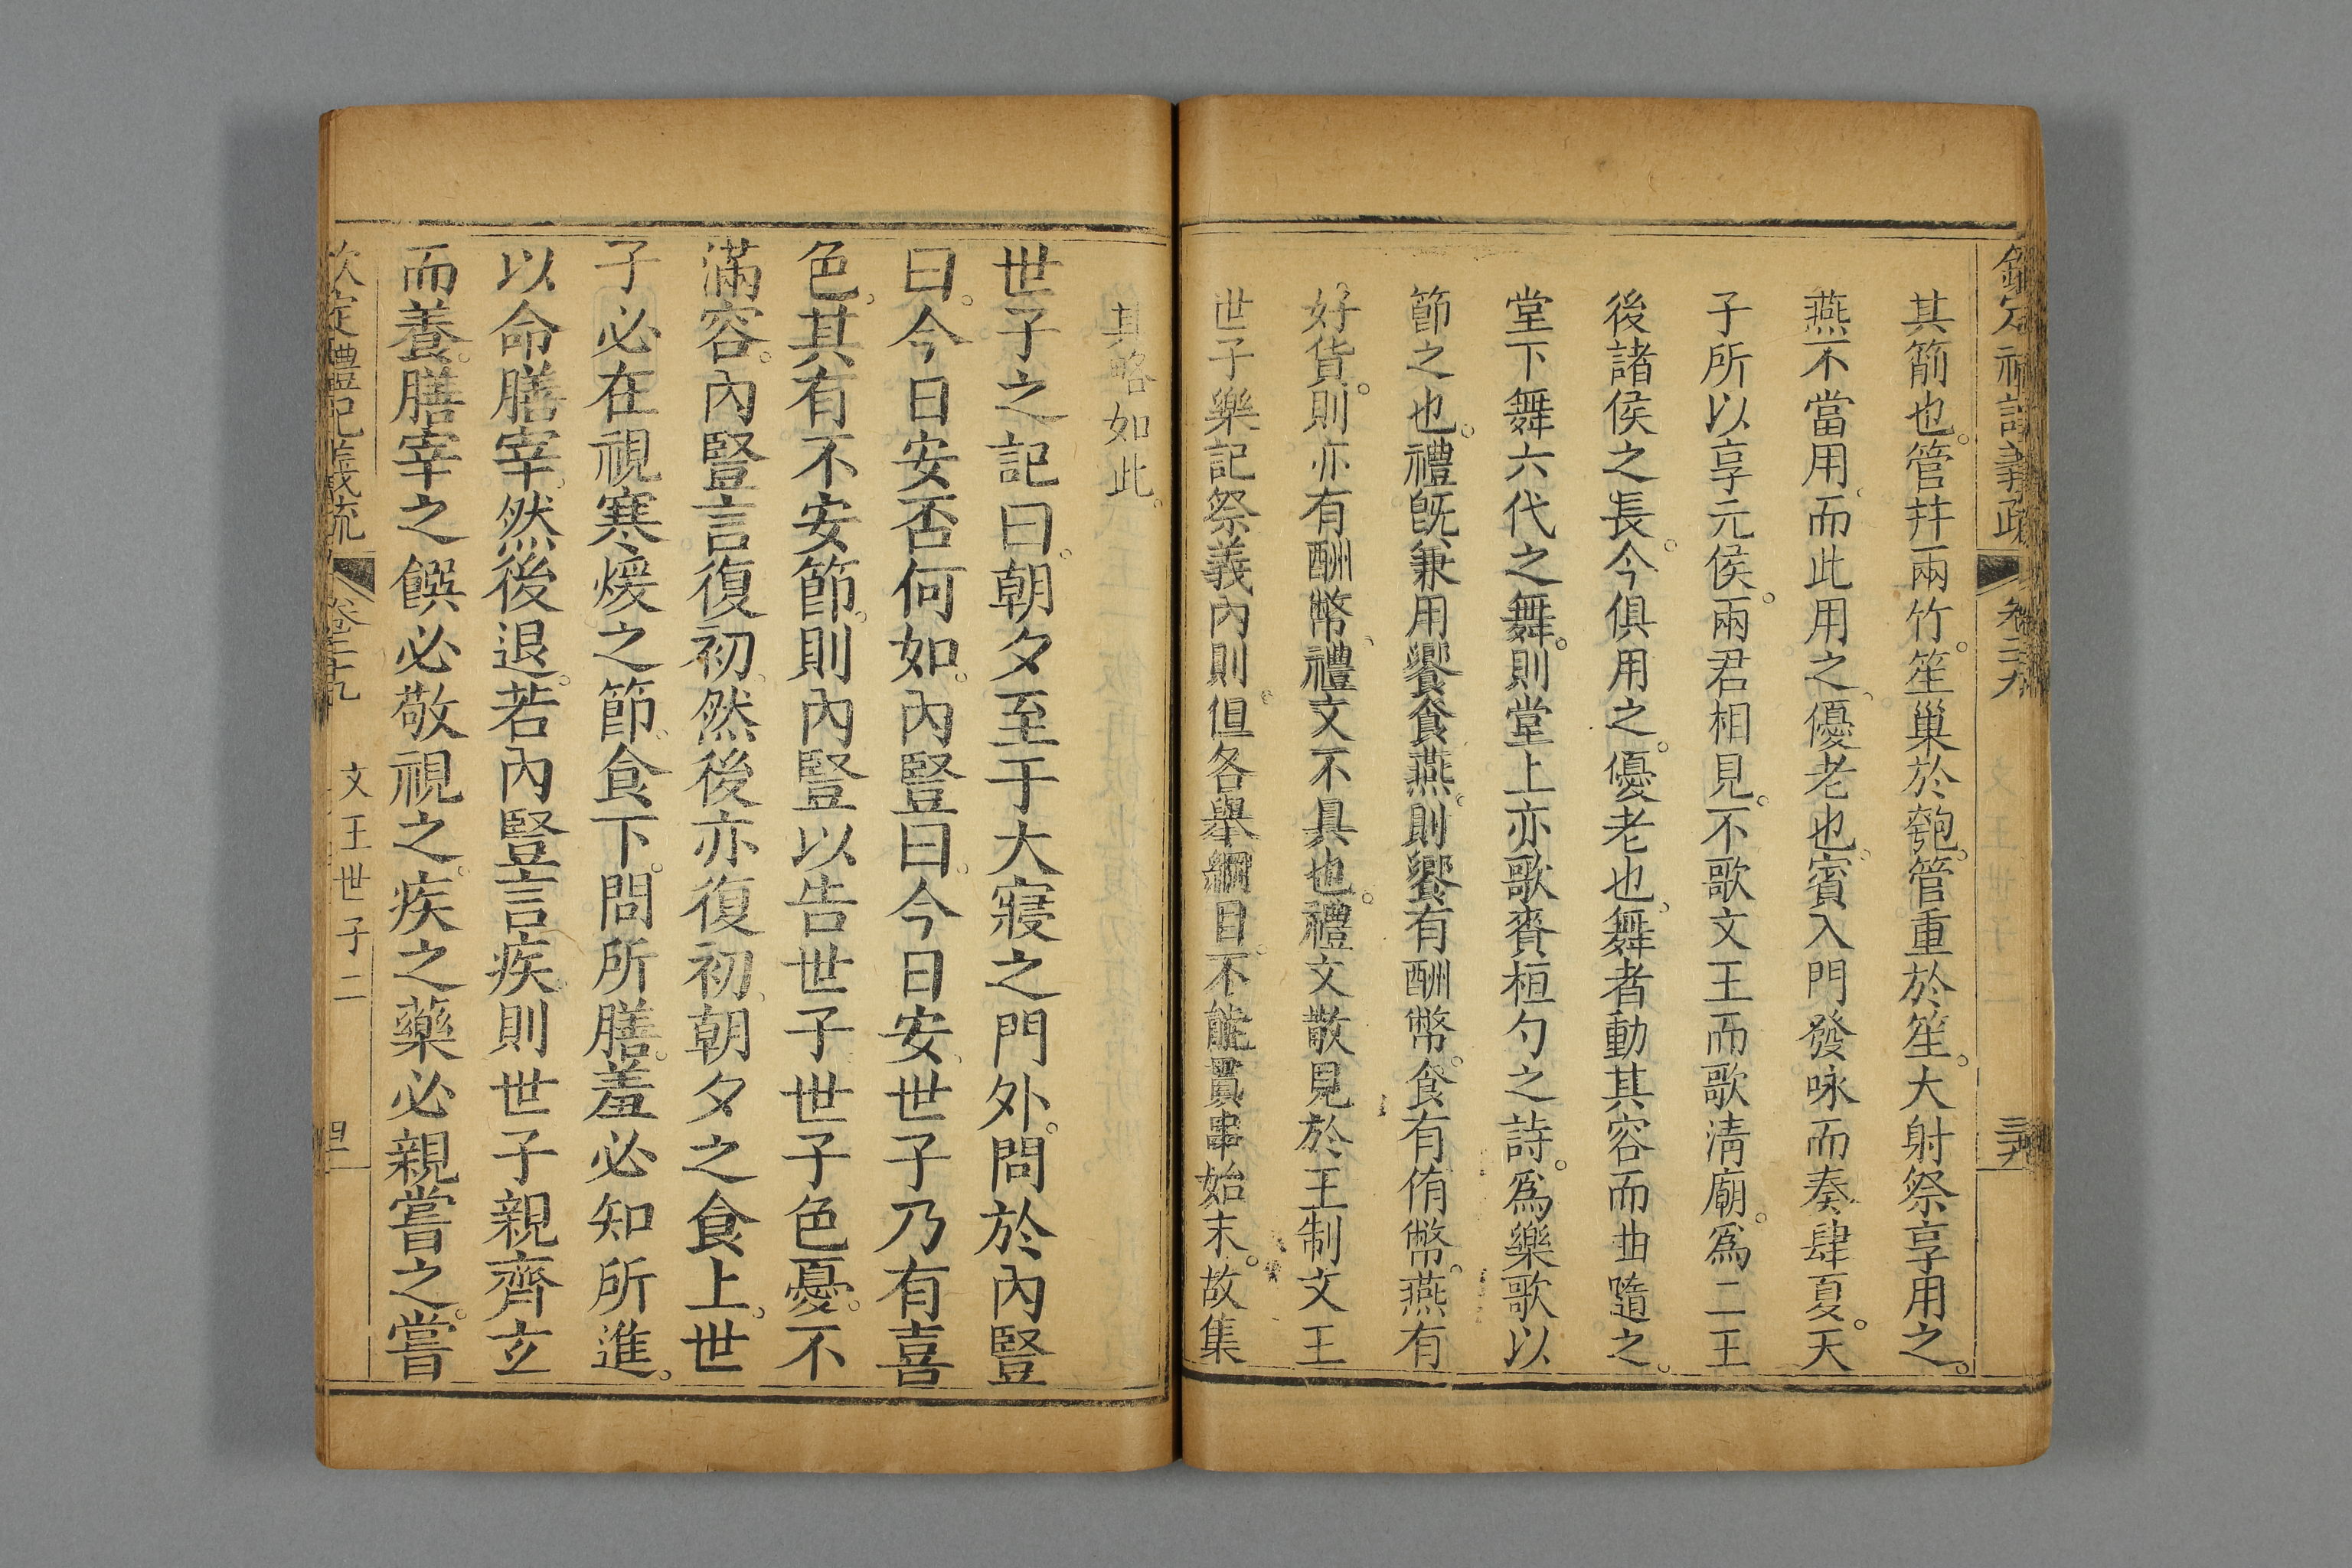 欽定禮記義疏 卷二十九 三九
其箾也。管幷兩竹。笙巢於匏。管重於笙。大射祭享用之。
燕不當用、而此用之、優老也。賓入門發咏而奏肆夏。天
子所以享元侯。兩君相見。不歌文王而歌淸廟。爲二王
後諸侯之長。今俱用之。優老也、舞者動其容而曲隨之。
堂下舞六代之舞。則堂上亦歌賚桓勺之詩。爲樂歌以
節之也。禮旣兼用饗食燕。則饗有酬幣。食有侑幣。燕有
好貨。則亦有酬幣、禮文不具也。禮文散見於王制文王
世子樂記祭義內則。但各舉綱目。不能貫串始末。故集
其略如此。
世子之記曰。朝夕至于大寢之門外。問於內豎
曰。今日安否何如。內豎曰。今日安、世子乃有喜
色、其有不安節。則內豎以告世子世子色憂。不
滿容。內豎言復初、然後亦復初、朝夕之食上、世
子必在視寒煖之節、食下。問所膳。羞必知所進。
以命膳宰、然後退。若內豎言疾、則世子親齊玄
而養。膳宰之饌必敬視之。疾之藥必親嘗之。嘗
欽定禮記義疏 卷二十九 文王世子二